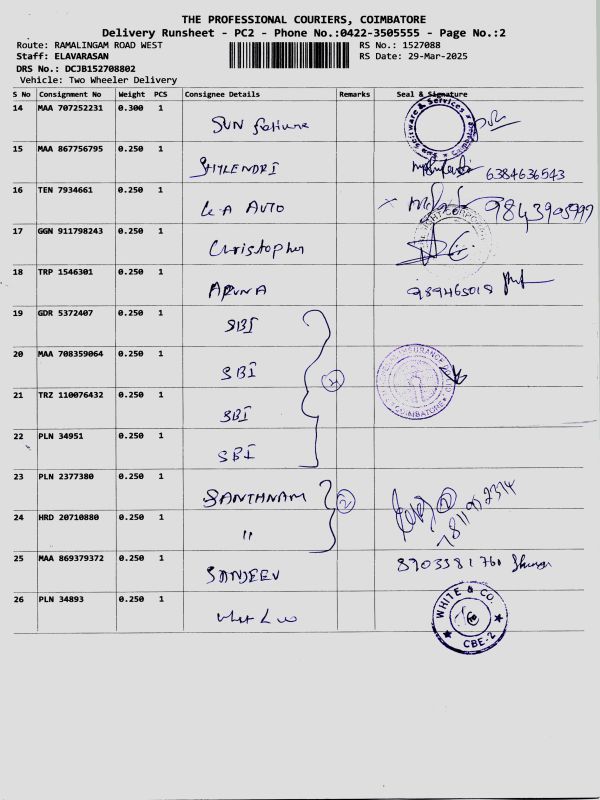 THE PROFESSIONAL COURIERS, COIMBATORE
Delivery Runsheet - PC2 - Phone No.:0422-3505555 - Page No.:2
Route: RAMALINGAM ROAD WEST
Staff: ELAVARASAN
DRS No.: DCJB152708802
Vehicle: Two Wheeler Delivery
RS No.: 1527088
RS Date: 29-Mar-2025
S No Consignment No Weight PCS Consignee Details Remarks Seal & Signature
14 MAA 707252231 0.300 1 SUN
15 MAA 867756795 0.250 1 SHYLENDRI 6384636543
16 TEN 7934661 0.250 1 AUTO
17 GGN 911798243 0.250 1 Christopher
18 TRP 1546301 0.250 1 ARUNA
19 GDR 5372407 0.250 1 SBI
20 MAA 708359064 0.250 1 SBI
21 TRZ 110076432 0.250 1 SBI
22 PLN 34951 0.250 1 SBI
23 PLN 2377380 0.250 1 SANTHNAM 2
24 HRD 20710880 0.250 1 "
25 MAA 869379372 0.250 1 SANJEEV
26 PLN 34893 0.250 1
WHITE & CO.
CBE-2